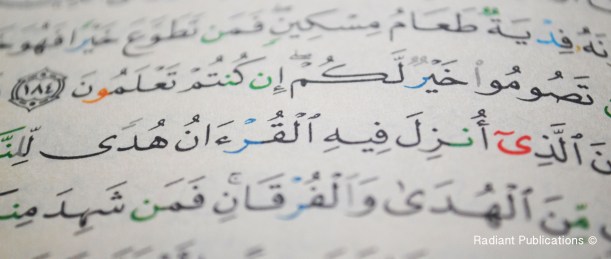 فِدْيَةٌ طَعَامُ مِسْكِينٍ فَمَن تَطَوَّعَ خَيْرًا فَهُوَ
تَصُومُوا۟ خَيْرٌ لَّكُمْ ۖ إِن كُنتُمْ تَعْلَمُونَ ١٨٤
ٱلَّذِىٓ أُنزِلَ فِيهِ ٱلْقُرْءَانُ هُدًى
مِّنَ ٱلْهُدَىٰ وَٱلْفُرْقَانِ ۚ فَمَن شَهِدَ
Radiant Publications ©